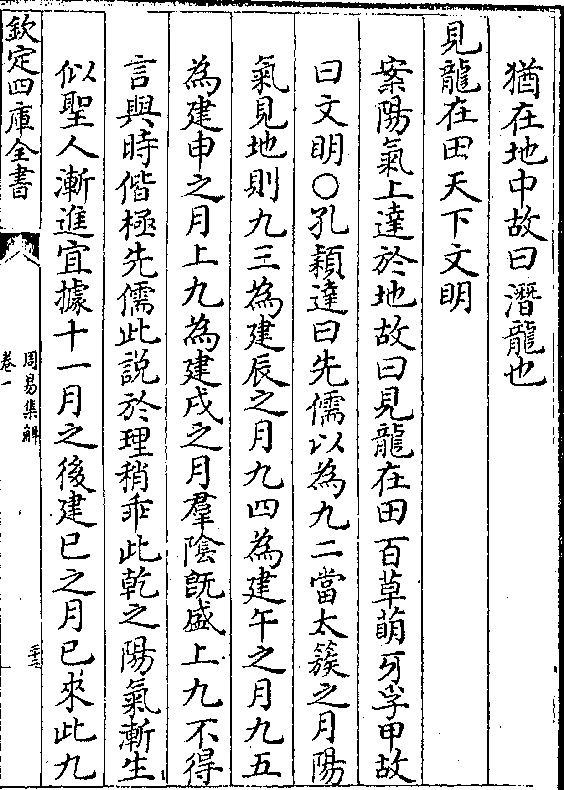 猶在地中故曰潛龍也
見龍在田天下文明
案陽氣上達於地故曰見龍在田百草萌牙孚甲故
曰文明○孔穎達曰先儒以為九二當太簇之月陽
氣見地則九三為建辰之月九四為建午之月九五
為建申之月上九為建戌之月羣陰旣盛上九不得
言與時偕極先儒此説於理稍乖此乾之陽氣漸生
似聖人漸進宜據十一月之後建巳之月已來此九
欽定四庫全書
周易集解
卷一